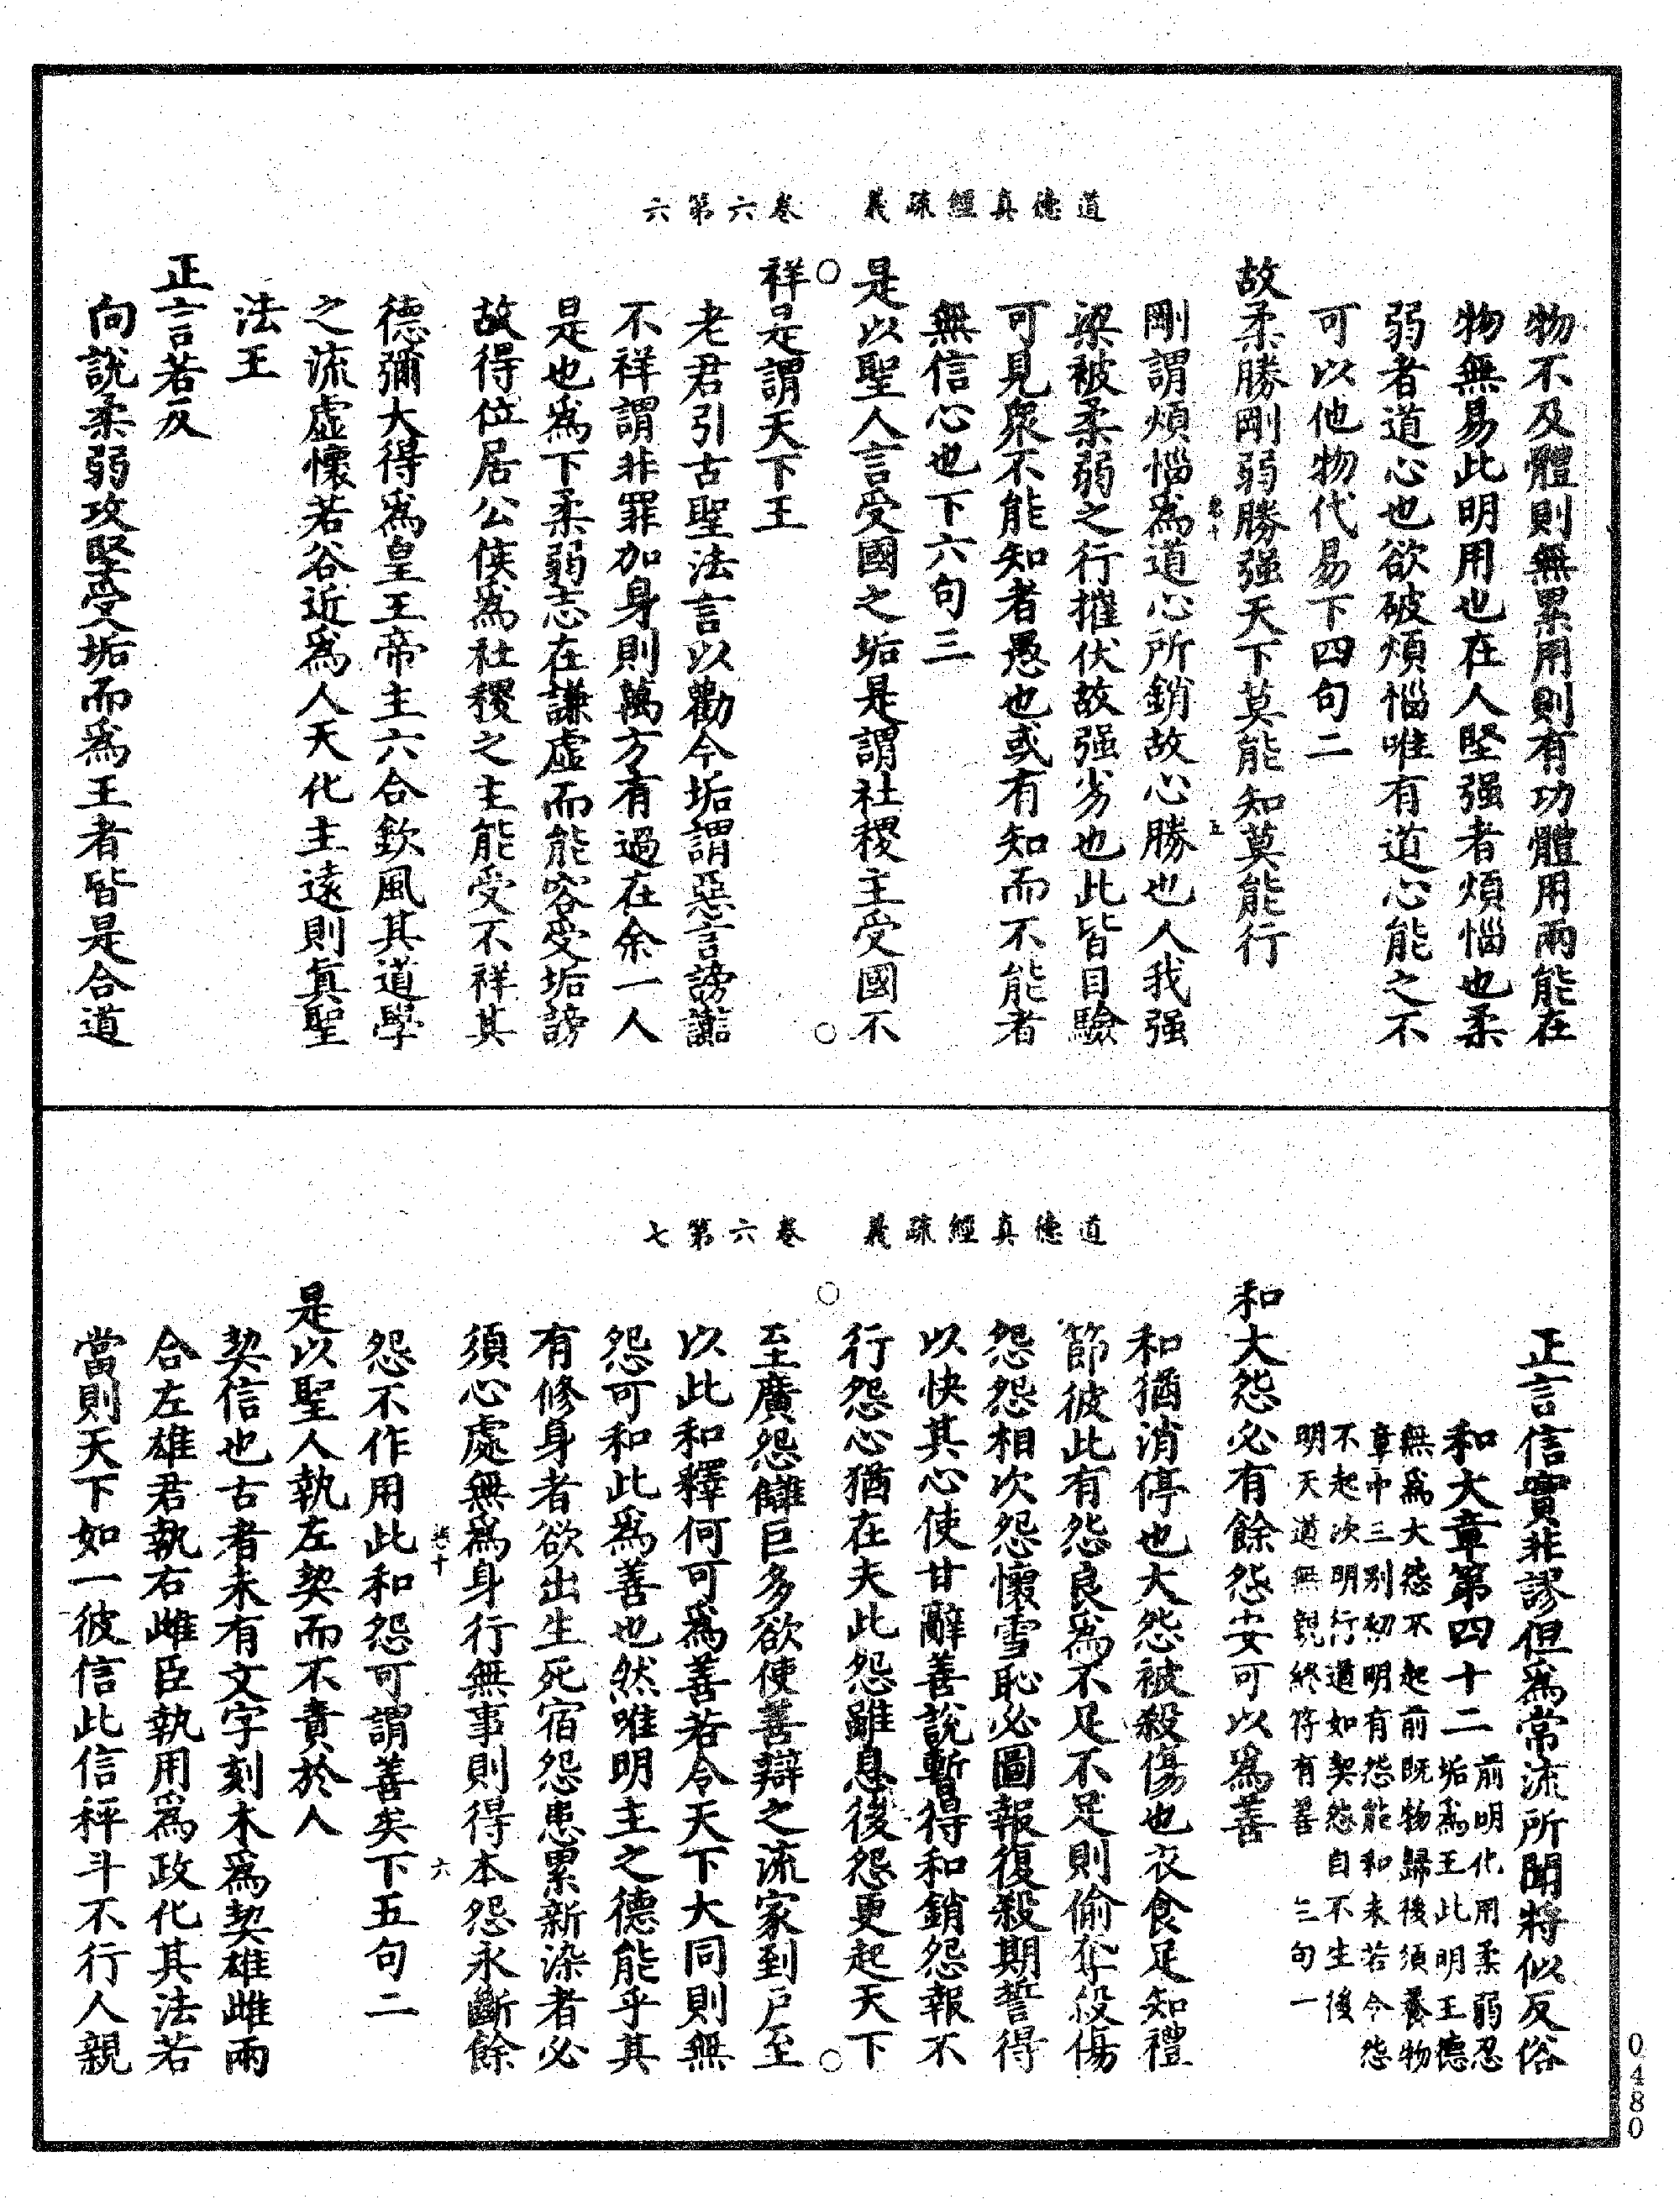 道德真經疏義　卷六第六
物不及體則無累用則有功體用兩能在
物無易此明用也在人堅强者煩惱也柔
弱者道心也欲破煩惱唯有道心能之不
可以他物代易下四句二
故柔勝剛弱勝强天下莫能知莫能行
剛謂煩惱爲道心所銷故心勝也人我强
梁被柔弱之行摧伏故强劣也此皆目驗
可見衆不能知者愚也或有知而不能者
無信心也下六句三
是以聖人言受國之垢是謂社稷主受國不
祥是謂天下王
老君引古聖法言以勸今垢謂惡言謗讟
不祥謂非罪加身則萬方有過在余一人
是也爲下柔弱志在謙虛而能容受垢謗
故得位居公侯爲社稷之主能受不祥其
德彌大得爲皇王帝主六合欽風其道學
之流虛懷若谷近爲人天化主遠則真聖
法王
正言若反
向說柔弱攻堅受垢而爲王者皆是合道
道德真經疏義　卷六第七
正言信實非謬但爲常流所聞將似反俗
和大章第四十二
前明化用柔弱忍
垢爲王此明王德
無爲大怨不起前既物歸後須養物
章中三別初明有怨能和未若令怨
不起次明行道如契怨自不生後
明天道無親終符有善　三句一
和大怨必有餘怨安可以爲善
和猶消停也大怨被殺傷也衣食足知禮
節彼此有怨良爲不足不足則偷奪殺傷
怨怨相次怨懷雪恥必圖報復殺期誓得
以快其心使甘辭善說暫得和銷怨報不
行怨心猶在夫此怨雖息後怨更起天下
至廣怨讎巨多欲使善辯之流家到戶至
以此和釋何可爲善若令天下大同則無
怨可和此爲善也然唯明主之德能乎其
有修身者欲出生死宿怨患累新染者必
須心處無爲身行無事則得本怨永斷餘
怨不作用此和怨可謂善矣下五句二
是以聖人執左契而不責於人
契信也古者未有文字刻木爲契雄雌兩
合左雄君執右雌臣執用爲政化其法若
當則天下如一彼信此信秤斗不行人親
0480